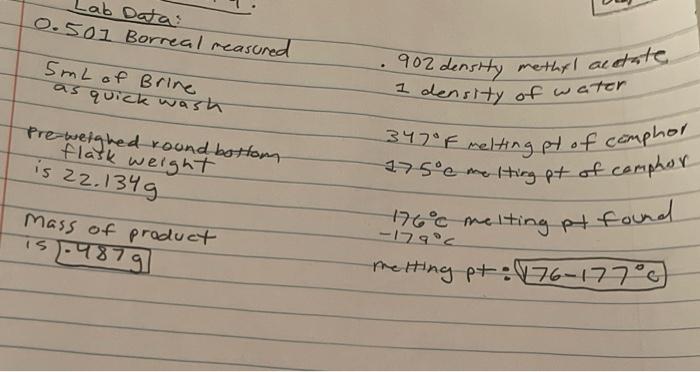 Lab Data:
0.501 Borreal measured
5mL of Brine
as quick wash
Pre-weighed round bottom
flask weight
is 22.134g
Mass of product
is .487g
.902 density methyl acetate
1 density of water
347°F melting pt of camphor
175°C melting pt of camphor
176°C melting pt found
-179°C
melting pt: 176-177°C